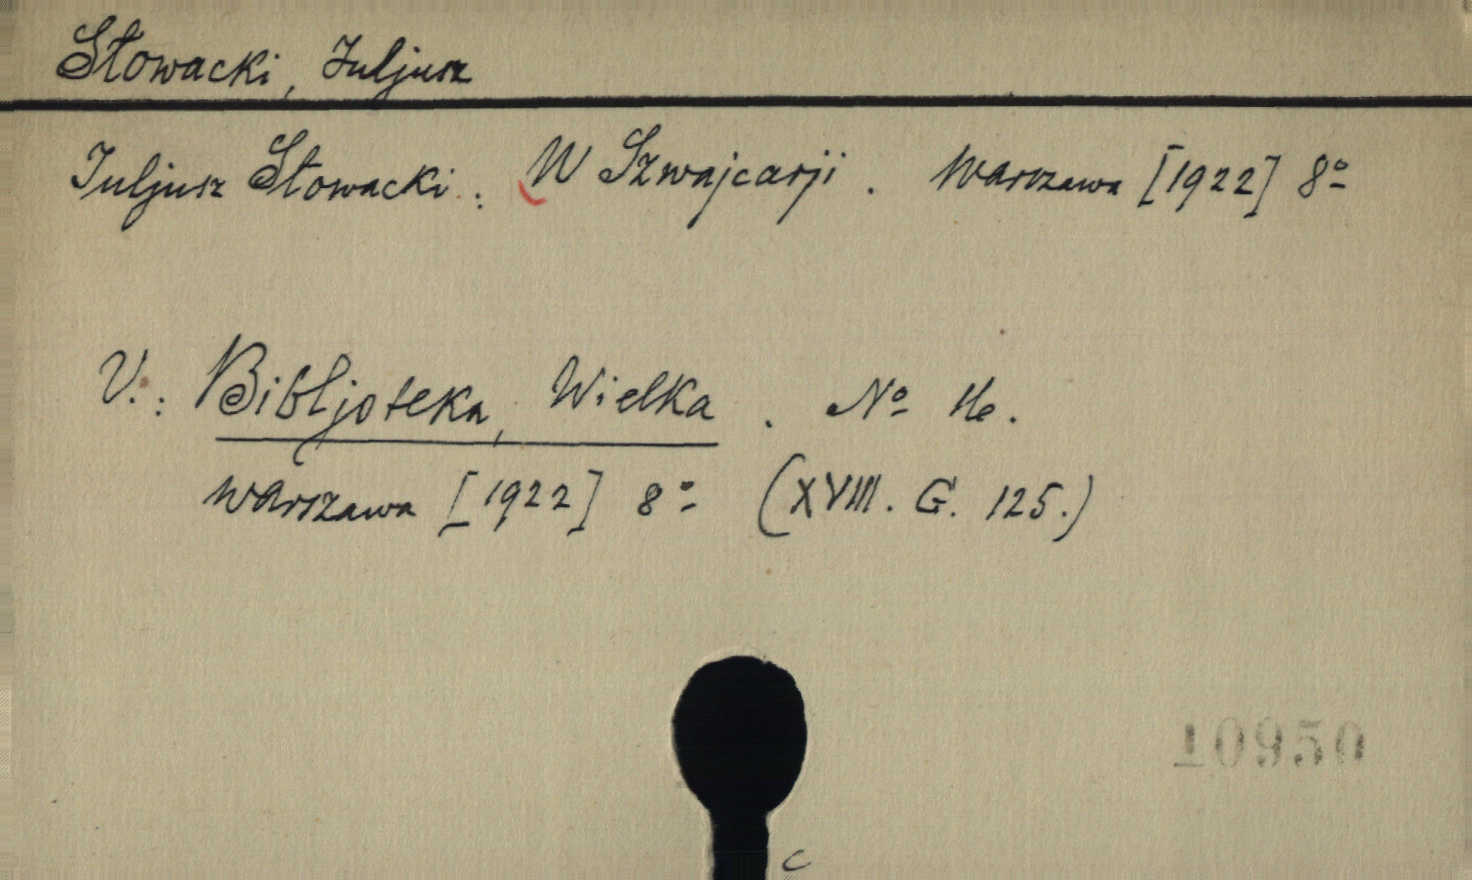 Słowacki, Juljusz
Juljusz Słowacki.: W Szwajcarji. Warszawa [1922] 8º
V.: Bibljoteka, Wielka. Nº 16.
Warszawa [1922] 8º (XVIII. G. 125.)
10950
c